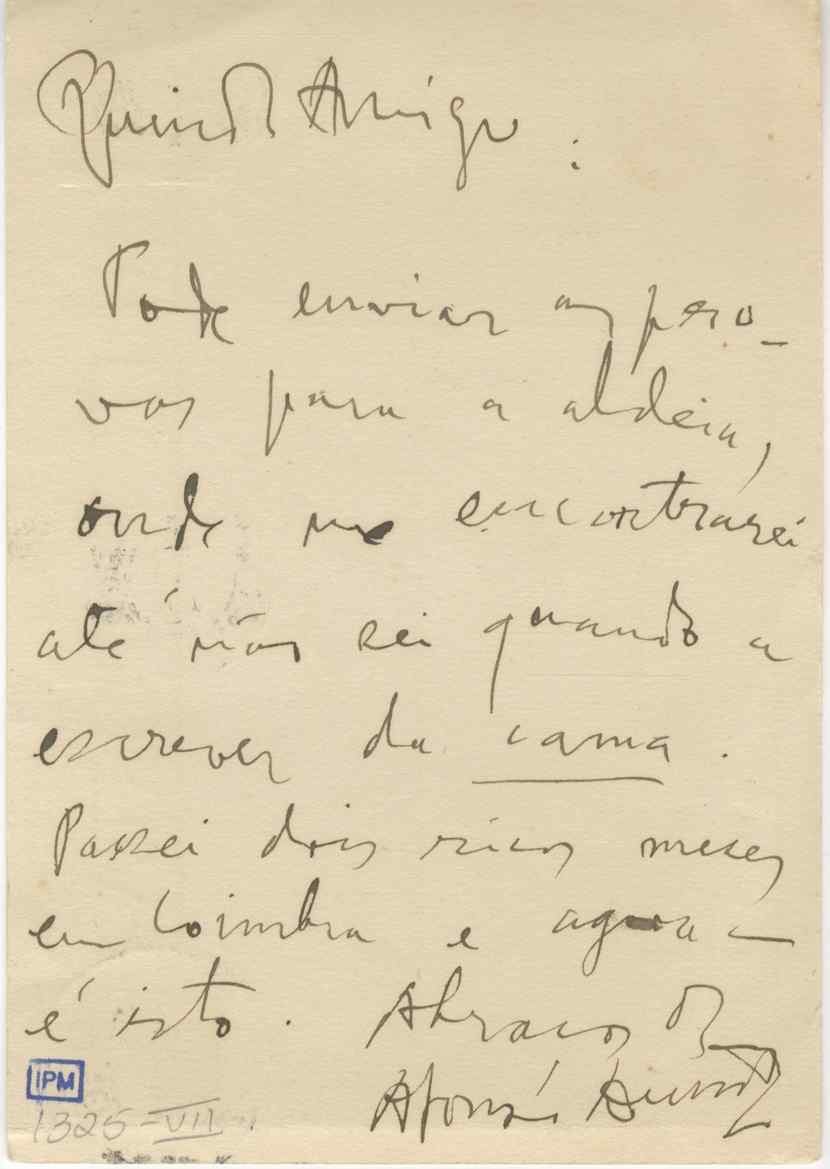 Querido Amigo:
Pode enviar as pero-
vas para a aldeia,
onde me encontrarei
até não sei quando a
escrever da cama.
Passei dois ricos meses
em Coimbra e agora —
é isto. Abraços do
Afonso Duarte
IPM
1325-VII